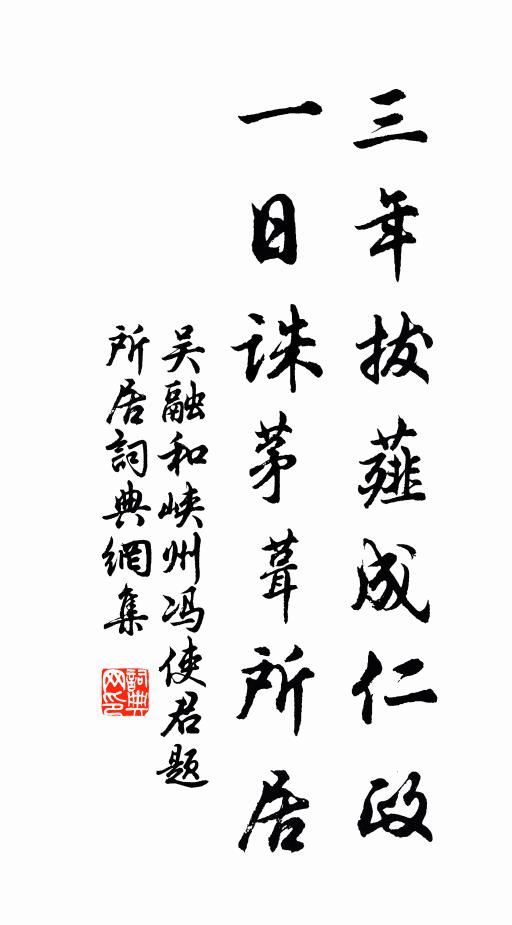 三年拔薤成仁政
一日誅茅葺所居
吴融和峡州冯使君题
所居詞典網集
詞典网印